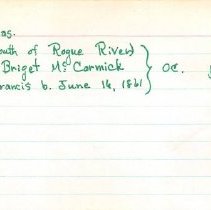 as.
outh of Rogue River)
Briget McCormick } OC.
Francis b. June 16, 1861